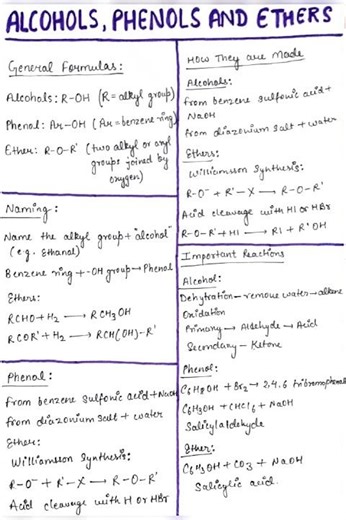 ALCOHOLS, PHENOLS AND ETHERS
General Formulas:
Alcohols: R-OH (R=alkyl group)
Phenol: Ar-OH (Ar=benzene ring)
Ether: R-O-R' (two alkyl or aryl
groups joined by
oxygen)
Naming:
Name the alkyl group+"alcohol"
(e.g. Ethanol)
Benzene ring +-OH group→Phenol
Ethers:
RCHO+H₂ → RCH₃OH
RCOR'+H₂ → RCH(OH)-R'
Phenol:
From benzene sulfonic acid+NaOH
From diazonium salt + water
Ether:
Williamsson Synthesis:
R-O⁻ + R'-X → R-O-R'
Acid cleavage with H or HBr
How They are Made
Alcohols:
From benzene sulfonic acid+
NaOH
From diazonium salt + water
Ethers:
Williamsson Synthesis:
R-O⁻ + R'-X → R-O-R'
Acid cleavage with HI or HBr
R-O-R'+HI → RI + R'OH
Important Reactions
Alcohol:
Dehytration—remove water→alkene
Oxidation
Primary→Aldehyde→Acid
Secondary-Ketone
Phenol:
+ Br₂→2,4.6 tribromophenol
C₆H₅OH + CHCl₆ + NaOH
Salicylaldehyde
Ether:
C₆H₅OH + CO₃ + NaOH
Salicylic acid.